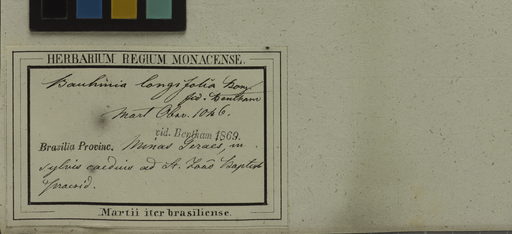 HERBARIUM REGIUM MONACENSE.
Bauhinia longifolia Bong
fid. Bentham
Mart Obs. 1046.
vid. Bentham 1869.
Brasilia Provinc. Minas Geraes, in
sylvis caeduis ad St. João Baptist
praesid.
Martii iter brasiliense.